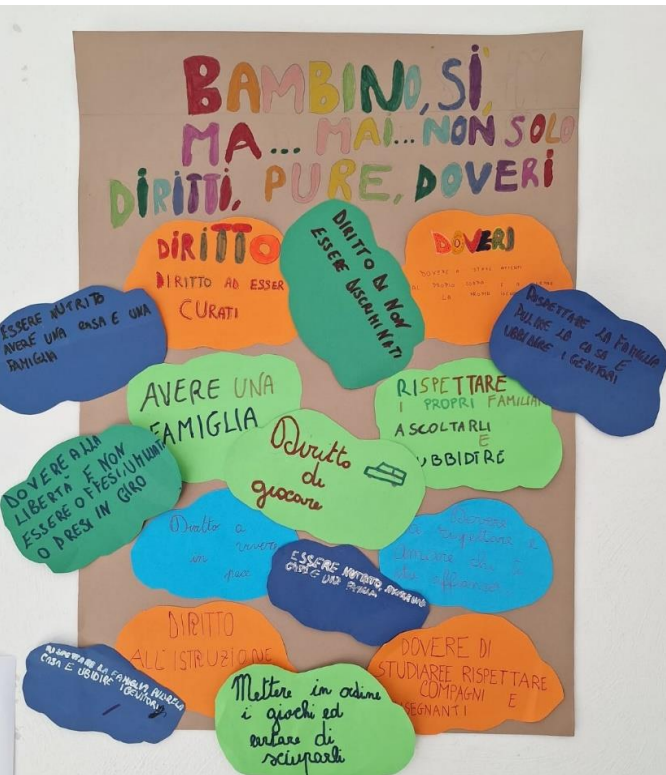 BAMBINO, SÌ,
MA... MAI... NON SOLO
DIRITTI, PURE, DOVERI
DIRITTO
DIRITTO AD ESSER
CURATI
DIRITTO DI NON
ESSERE DISCRIMINATI
DOVERI
ESSERE NUTRITO
AVERE UNA CASA E UNA
FAMIGLIA
RISPETTARE LA FAMIGLIA
PULIRE LA CASA E
UBBIDIRE I GENITORI
AVERE UNA
FAMIGLIA
RISPETTARE
I PROPRI FAMILIARI
ASCOLTARLI
E
UBBIDIRE
Diritto
di
giocare
DOVERE ALLA
LIBERTÀ E NON
ESSERE OFFESI, UMILIATI
O PRESI IN GIRO
Diritto a
vivere
in
pace
Dovere
di rispettare e
ESSERE NUTRITO, AVERE UNA
CASA E UNA FAMIGLIA
DIRITTO
ALL'ISTRUZIONE
DOVERE DI
STUDIARE E RISPETTARE
COMPAGNI E
INSEGNANTI
RISPETTARE LA FAMIGLIA, PULIRE LA
CASA E UBIDIRE I GENITORI
Mettere in ordine
i giochi ed
evitare di
sciuparli